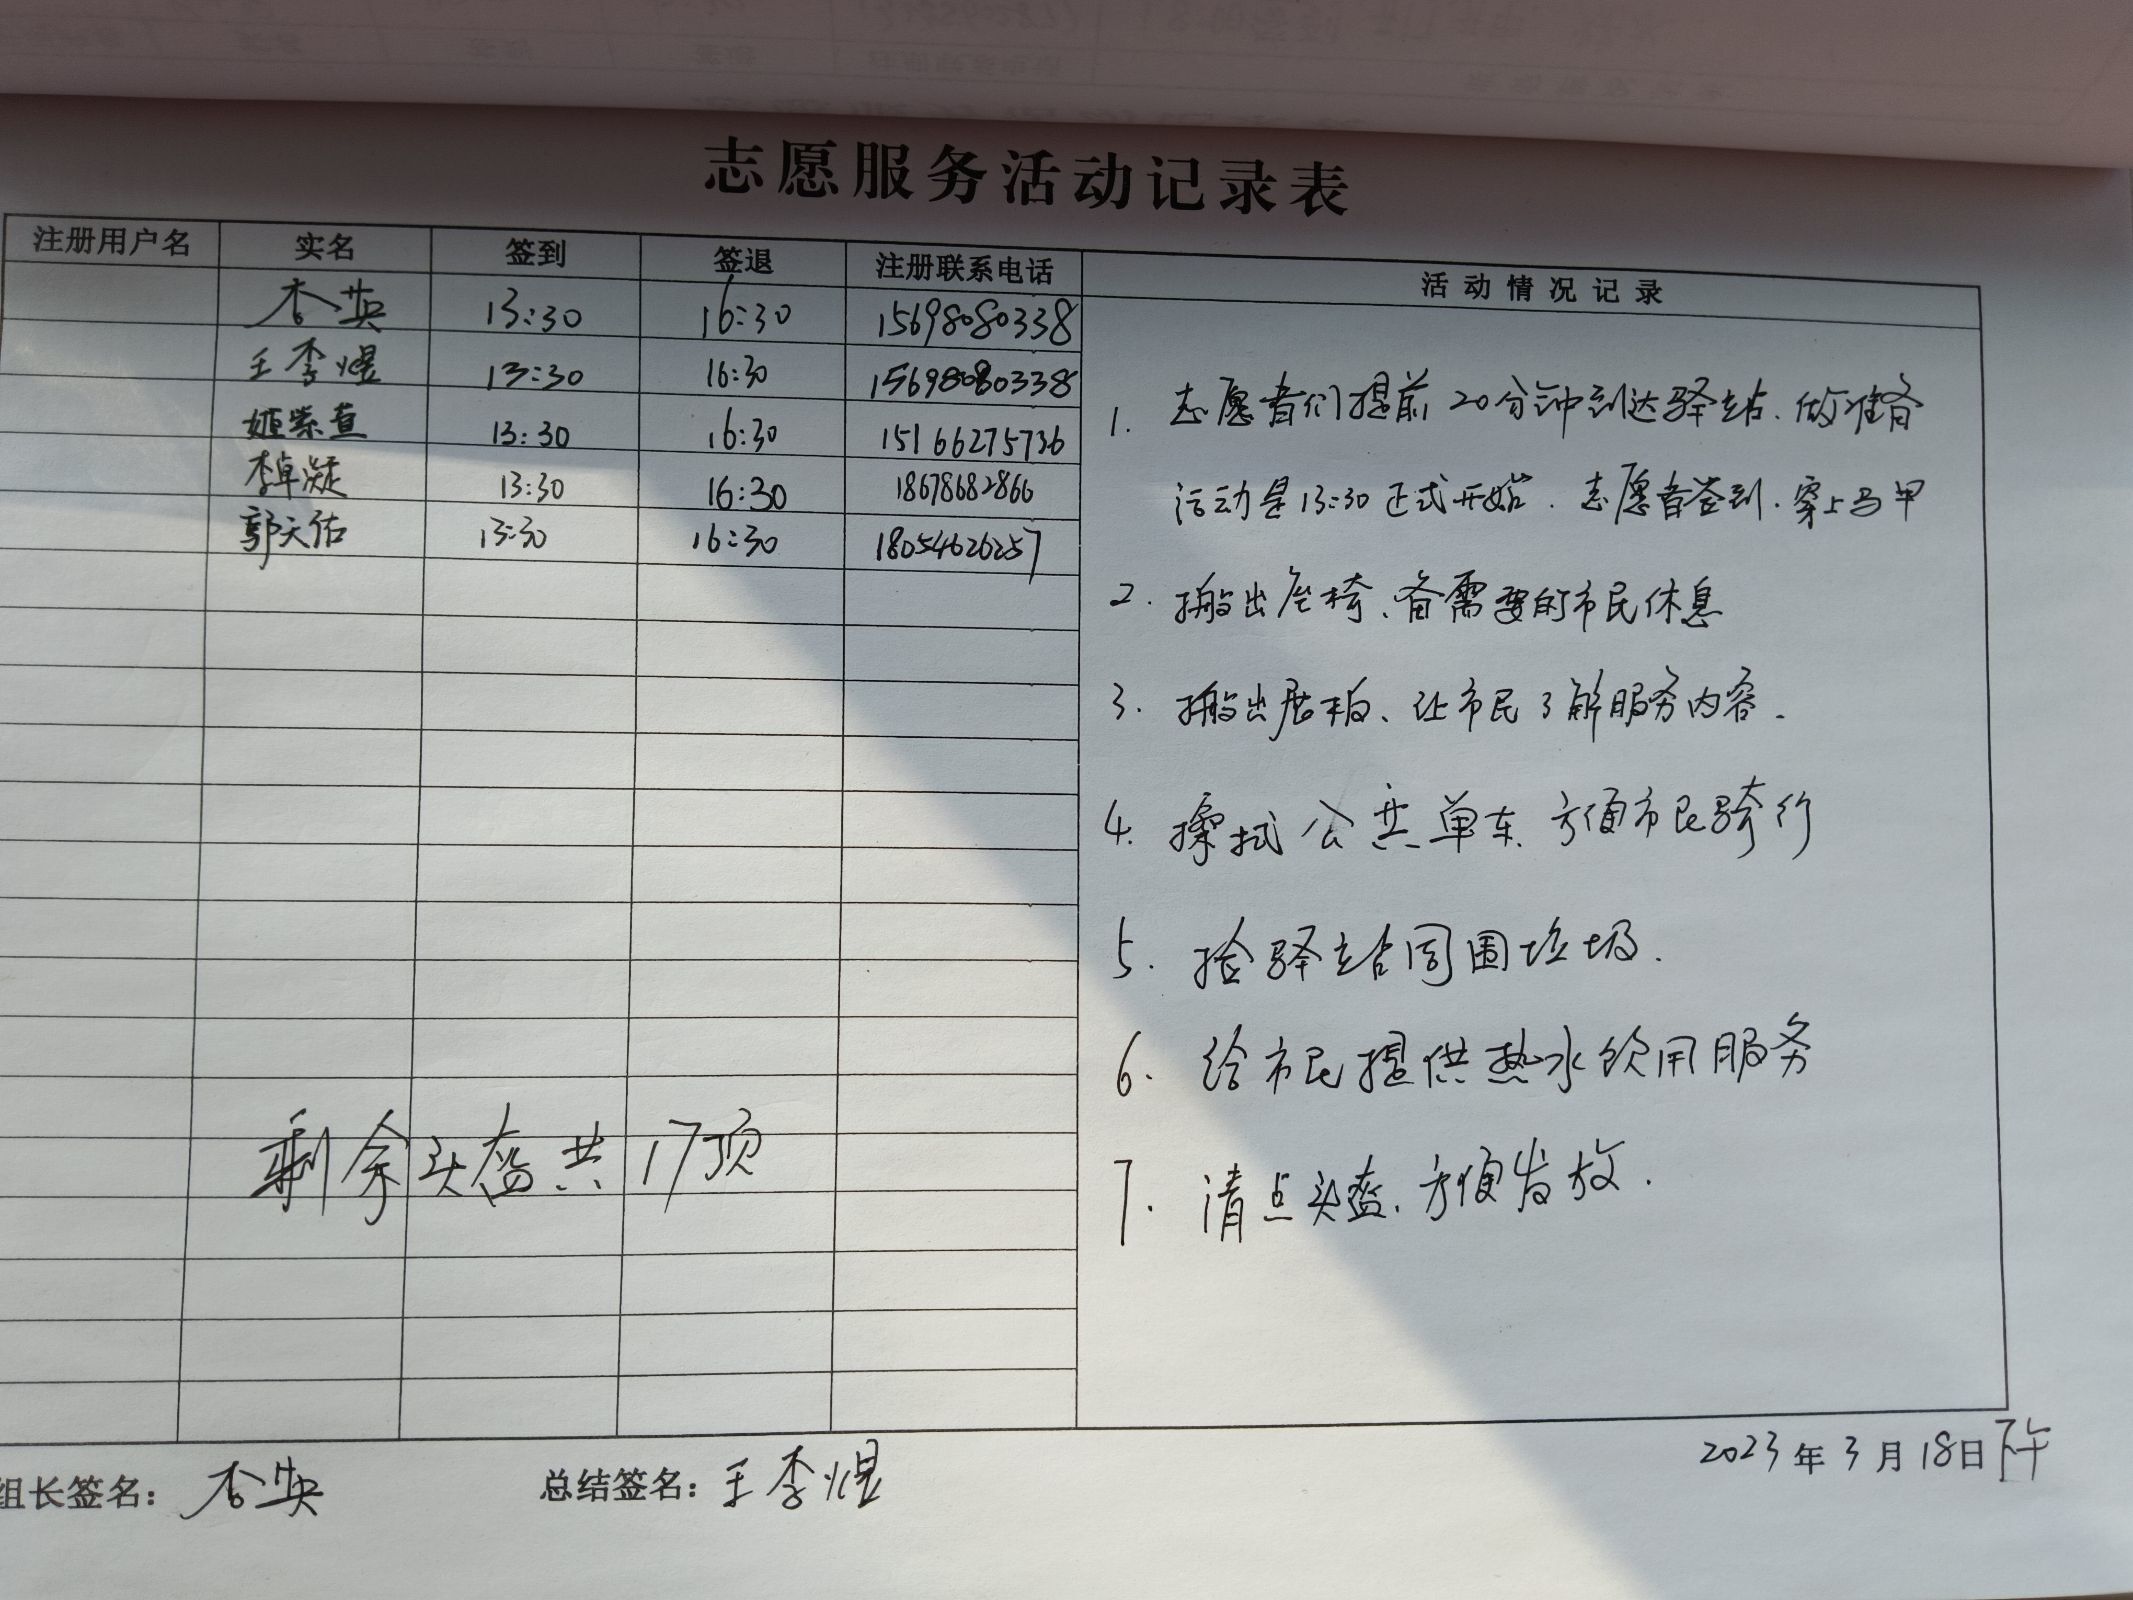 志愿服务活动记录表
注册用户名 实名 签到 签退 注册联系电话 活动情况记录
杏英 13:30 16:30 15698080338
王李煜 13:30 16:30 15698080338
姬紫萱 13:30 16:30 15166275736
李卓凝 13:30 16:30 18678682866
郭天佑 13:30 16:30 18054626257
1. 志愿者们提前20分钟到达驿站、做准备
活动是13:30正式开始. 志愿者签到、穿上马甲
2. 搬出座椅、备需要的市民休息
3. 搬出展板、让市民了解服务内容.
4. 擦拭公共单车、方便市民骑行
5. 捡驿站周围垃圾.
6. 给市民提供热水饮用服务
7. 清点头盔、方便发放.
剩余头盔共17顶
2023年3月18日下午
组长签名: 杏英 总结签名: 王李煜